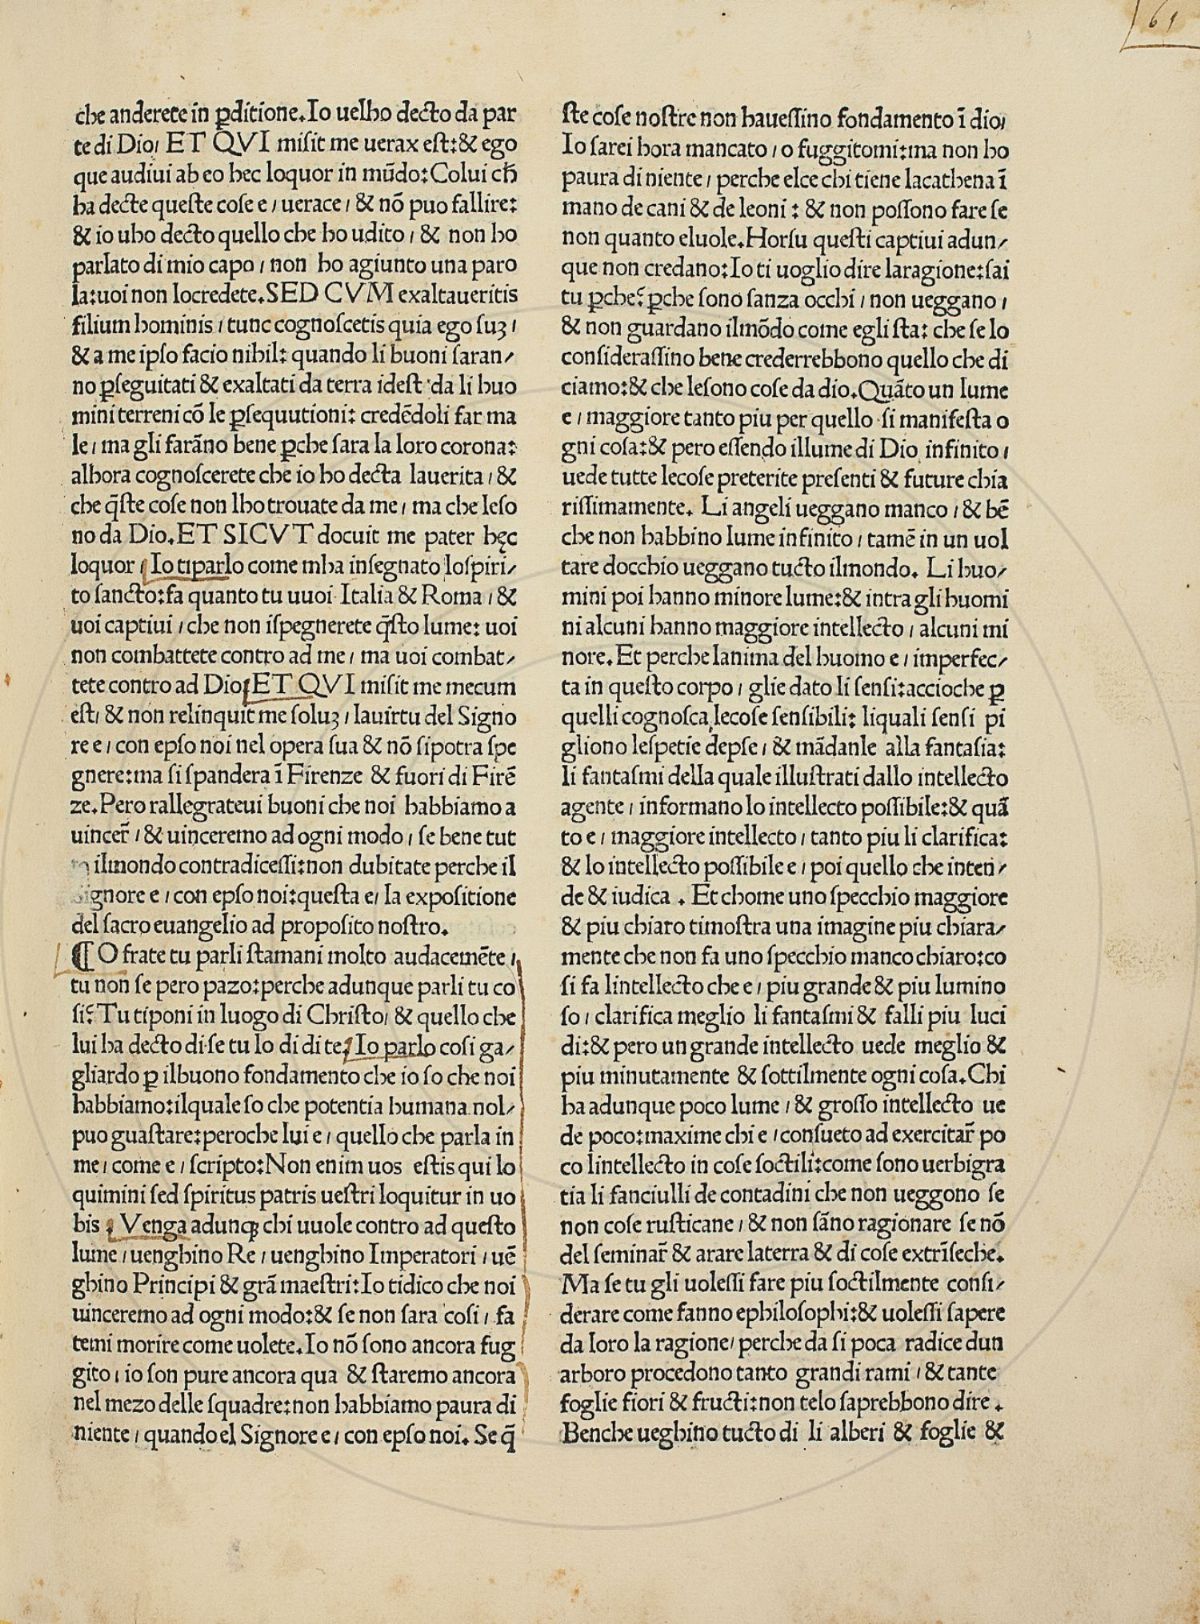 61
che anderete in ꝑditione.Io uelho decto da par
te di Dio, ET QVI misit me uerax est:& ego
que audiui ab eo hec loquor in mũdo:Colui cħ
ha decte queste cose e, uerace, & nõ puo fallire:
& io uho decto quello che ho udito, & non ho
parlato di mio capo, non ho agiunto una paro
la:uoi non locredete.SED CVM exaltaueritis
filium hominis, tunc cognoscetis quia ego suꝫ,
& a me ipso facio nibil: quando li buoni saran⸗
no ꝑseguitati & exaltati da terra idest da li huo
mini terreni cõ le ꝑsequutioni: credẽdoli far ma
le, ma gli farãno bene ꝑche sara la loro corona:
alhora cognoscerete che io ho decta lauerita, &
che q̃ste cose non lho trouate da me, ma che leso
no da Dio.ET SICVT docuit me pater hęc
loquor, Io tiparlo come mha insegnato lospiri⸗
to sancto:fa quanto tu uuoi Italia & Roma, &
uoi captiui, che non ispegnerete q̃sto lume: uoi
non combattete contro ad me, ma uoi combat⸗
tete contro ad Dio, ET QVI misit me mecum
est, & non relinquit me soluꝫ, lauirtu del Signo
re e, con epso noi nel opera sua & nõ sipotra spe
gnere:ma si spandera ĩ Firenze & fuori di Firẽ
ze.Pero rallegrateui buoni che noi habbiamo a
uincer̃, & uinceremo ad ogni modo, se bene tut
to ilmondo contradicessi:non dubitate perche il
Signore e, con epso noi:questa e, la expositione
del sacro euangelio ad proposito nostro.
¶ O frate tu parli stamani molto audacemẽte,
tu non se pero pazo:perche adunque parli tu co
si? Tu tiponi in luogo di Christo, & quello che
lui ha decto di se tu lo di di te, Io parlo cosi ga⸗
gliardo ꝑ ilbuono fondamento che io so che noi
habbiamo:ilquale so che potentia humana nol⸗
puo guastare:peroche lui e, quello che parla in
me, come e, scripto:Non enim uos estis qui lo
quimini sed spiritus patris uestri loquitur in uo
bis, Venga adunqꝫ chi uuole contro ad questo
lume, uenghino Re, uenghino Imperatori, uẽ
ghino Principi & grã maestri:Io tidico che noi
uinceremo ad ogni modo:& se non sara cosi, fa
temi morire come uolete.Io nõ sono ancora fug
gito, io son pure ancora qua & staremo ancora
nel mezo delle squadre:non habbiamo paura di
niente, quando el Signore e, con epso noi. Se q̃
ste cose nostre non hauessino fondamento ĩ dio,
Io sarei hora mancato, o fuggitomi:ma non ho
paura di niente, perche elce chi tiene lacathena ĩ
mano de cani & de leoni : & non possono fare se
non quanto eluole.Horsu questi captiui adun⸗
que non credano:Io ti uoglio dire laragione:sai
tu ꝑche? ꝑche sono sanza occhi, non ueggano,
& non guardano ilmõdo come egli sta: che se lo
considerassino bene crederrebbono quello che di
ciamo:& che lesono cose da dio.Quãto un lume
e, maggiore tanto piu per quello si manifesta o
gni cosa:& pero essendo illume di Dio infinito,
uede tutte lecose preterite presenti & future chia
rissimamente. Li angeli ueggano manco, & bẽ
che non habbino lume infinito, tamẽ in un uol
tare docchio ueggano tucto ilmondo. Li huo⸗
mini poi hanno minore lume:& intra gli huomi
ni alcuni hanno maggiore intellecto, alcuni mi
nore. Et perche lanima del huomo e, imperfec⸗
ta in questo corpo, glie dato li sensi:accioche ꝑ
quelli cognosca lecose sensibili: liquali sensi pi
gliono lespetie depse, & mãdanle alla fantasia:
li fantasmi della quale illustrati dallo intellecto
agente, informano lo intellecto possibile:& quã
to e, maggiore intellecto, tanto piu li clarifica:
& lo intellecto possibile e, poi quello che inten⸗
de & iudica . Et chome uno specchio maggiore
& piu chiaro timostra una imagine piu chiara⸗
mente che non fa uno specchio manco chiaro:co
si fa lintellecto che e, piu grande & piu lumino
so, clarifica meglio li fantasmi & falli piu luci
di:& pero un grande intellecto uede meglio &
piu minutamente & sottilmente ogni cosa.Chi
ha adunque poco lume, & grosso intellecto ue
de poco:maxime chi e, consueto ad exercitar̃ po
co lintellecto in cose soctili:come sono uerbigra
tia li fanciulli de contadini che non ueggono se
non cose rusticane, & non sãno ragionare se nõ
del seminar̃ & arare laterra & di cose extrĩseche.
Ma se tu gli uolessi fare piu soctilmente consi⸗
derare come fanno ephilosophi:& uolessi sapere
da loro la ragione, perche da si poca radice dun
arboro procedono tanto grandi rami, & tante
foglie fiori & fructi:non telo saprebbono dire .
Benche ueghino tucto di li alberi & foglie &